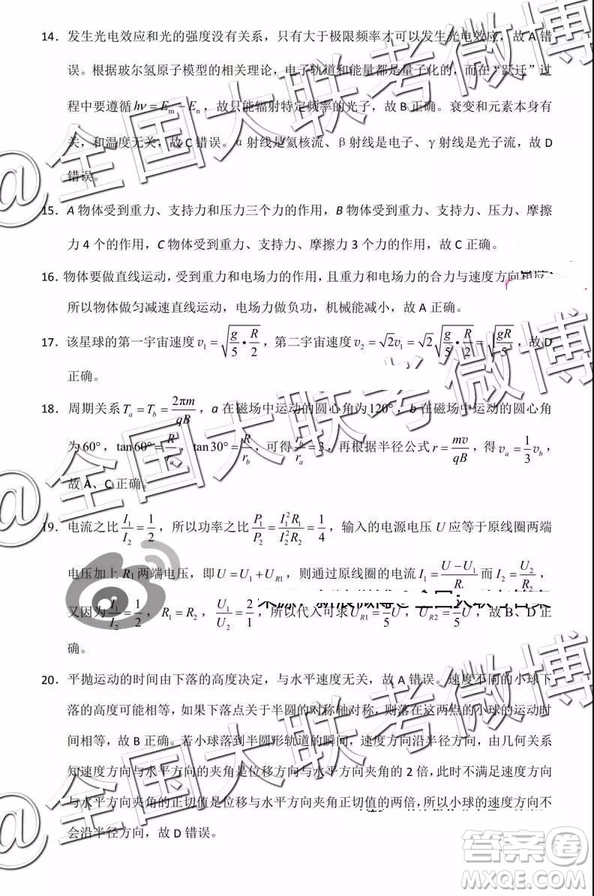 14. 发生光电效应和光的强度没有关系，只有大于极限频率才可以发生光电效应，故 A 错
误。根据玻尔氢原子模型的相关理论，电子轨道和能量都是量子化的，而在“跃迁”过
程中要遵循 hν = Em - En，故只能辐射特定频率的光子，故 B 正确。衰变和元素本身有
关，和温度无关，故 C 错误。α 射线是氦核流、β 射线是电子流、γ 射线是光子流，故 D
错误。
15. A 物体受到重力、支持力和压力三个力的作用，B 物体受到重力、支持力、压力、摩擦
力 4 个的作用，C 物体受到重力、支持力、摩擦力 3 个力的作用，故 C 正确。
16. 物体要做直线运动，受到重力和电场力的作用，且重力和电场力的合力与速度方向相反，
所以物体做匀减速直线运动，电场力做负功，机械能减小，故 A 正确。
17. 该星球的第一宇宙速度 v₁ = √(g/5 • R/2)，第二宇宙速度 v₂ = √2v₁ = √2√(g/5 • R/2) = √(gR/5)，故 D
正确。
18. 周期关系 Ta = Tb = 2πm/qB，a 在磁场中运动的圆心角为 120°，b 在磁场中运动的圆心角
为 60°，tan60° = R/ra，tan30° = R/rb，可得 rb/ra = 3，再根据半径公式 r = mv/qB，得 va = 1/3 vb，
故 A、C 正确。
19. 电流之比 I₁/I₂ = 1/2，所以功率之比 P₁/P₂ = I₁²R₁/I₂²R₂ = 1/4，输入的电源电压 U 应等于原线圈两端
电压加上 R₁ 两端电压，即 U = U₁ + UR1，则通过原线圈的电流 I₁ = (U - U₁)/R₁ 而 I₂ = U₂/R₂，
又因为 I₁/I₂ = 1/2，R₁ = R₂，U₁/U₂ = 2/1，所以代入可求 UR1 = U/5 UR2 = U/5，故 B、D 正
确。
20. 平抛运动的时间由下落的高度决定，与水平速度无关，故 A 错误。速度不同的小球下
落的高度可能相等，如果下落点关于半圆的对称轴对称，则落在这两点的小球的运动时
间相等，故 B 正确。若小球落到半圆形轨道的瞬间，速度方向沿半径方向，由几何关系
知速度方向与水平方向的夹角是位移方向与水平方向夹角的 2 倍，此时不满足速度方向
与水平方向夹角的正切值是位移方向与水平方向正切值的两倍，所以小球的速度不可能
会沿半径方向，故 D 错误。
@全国大联考微博
@全国大联考微博
@全国大联考微博
答案卷
MXQE.COM